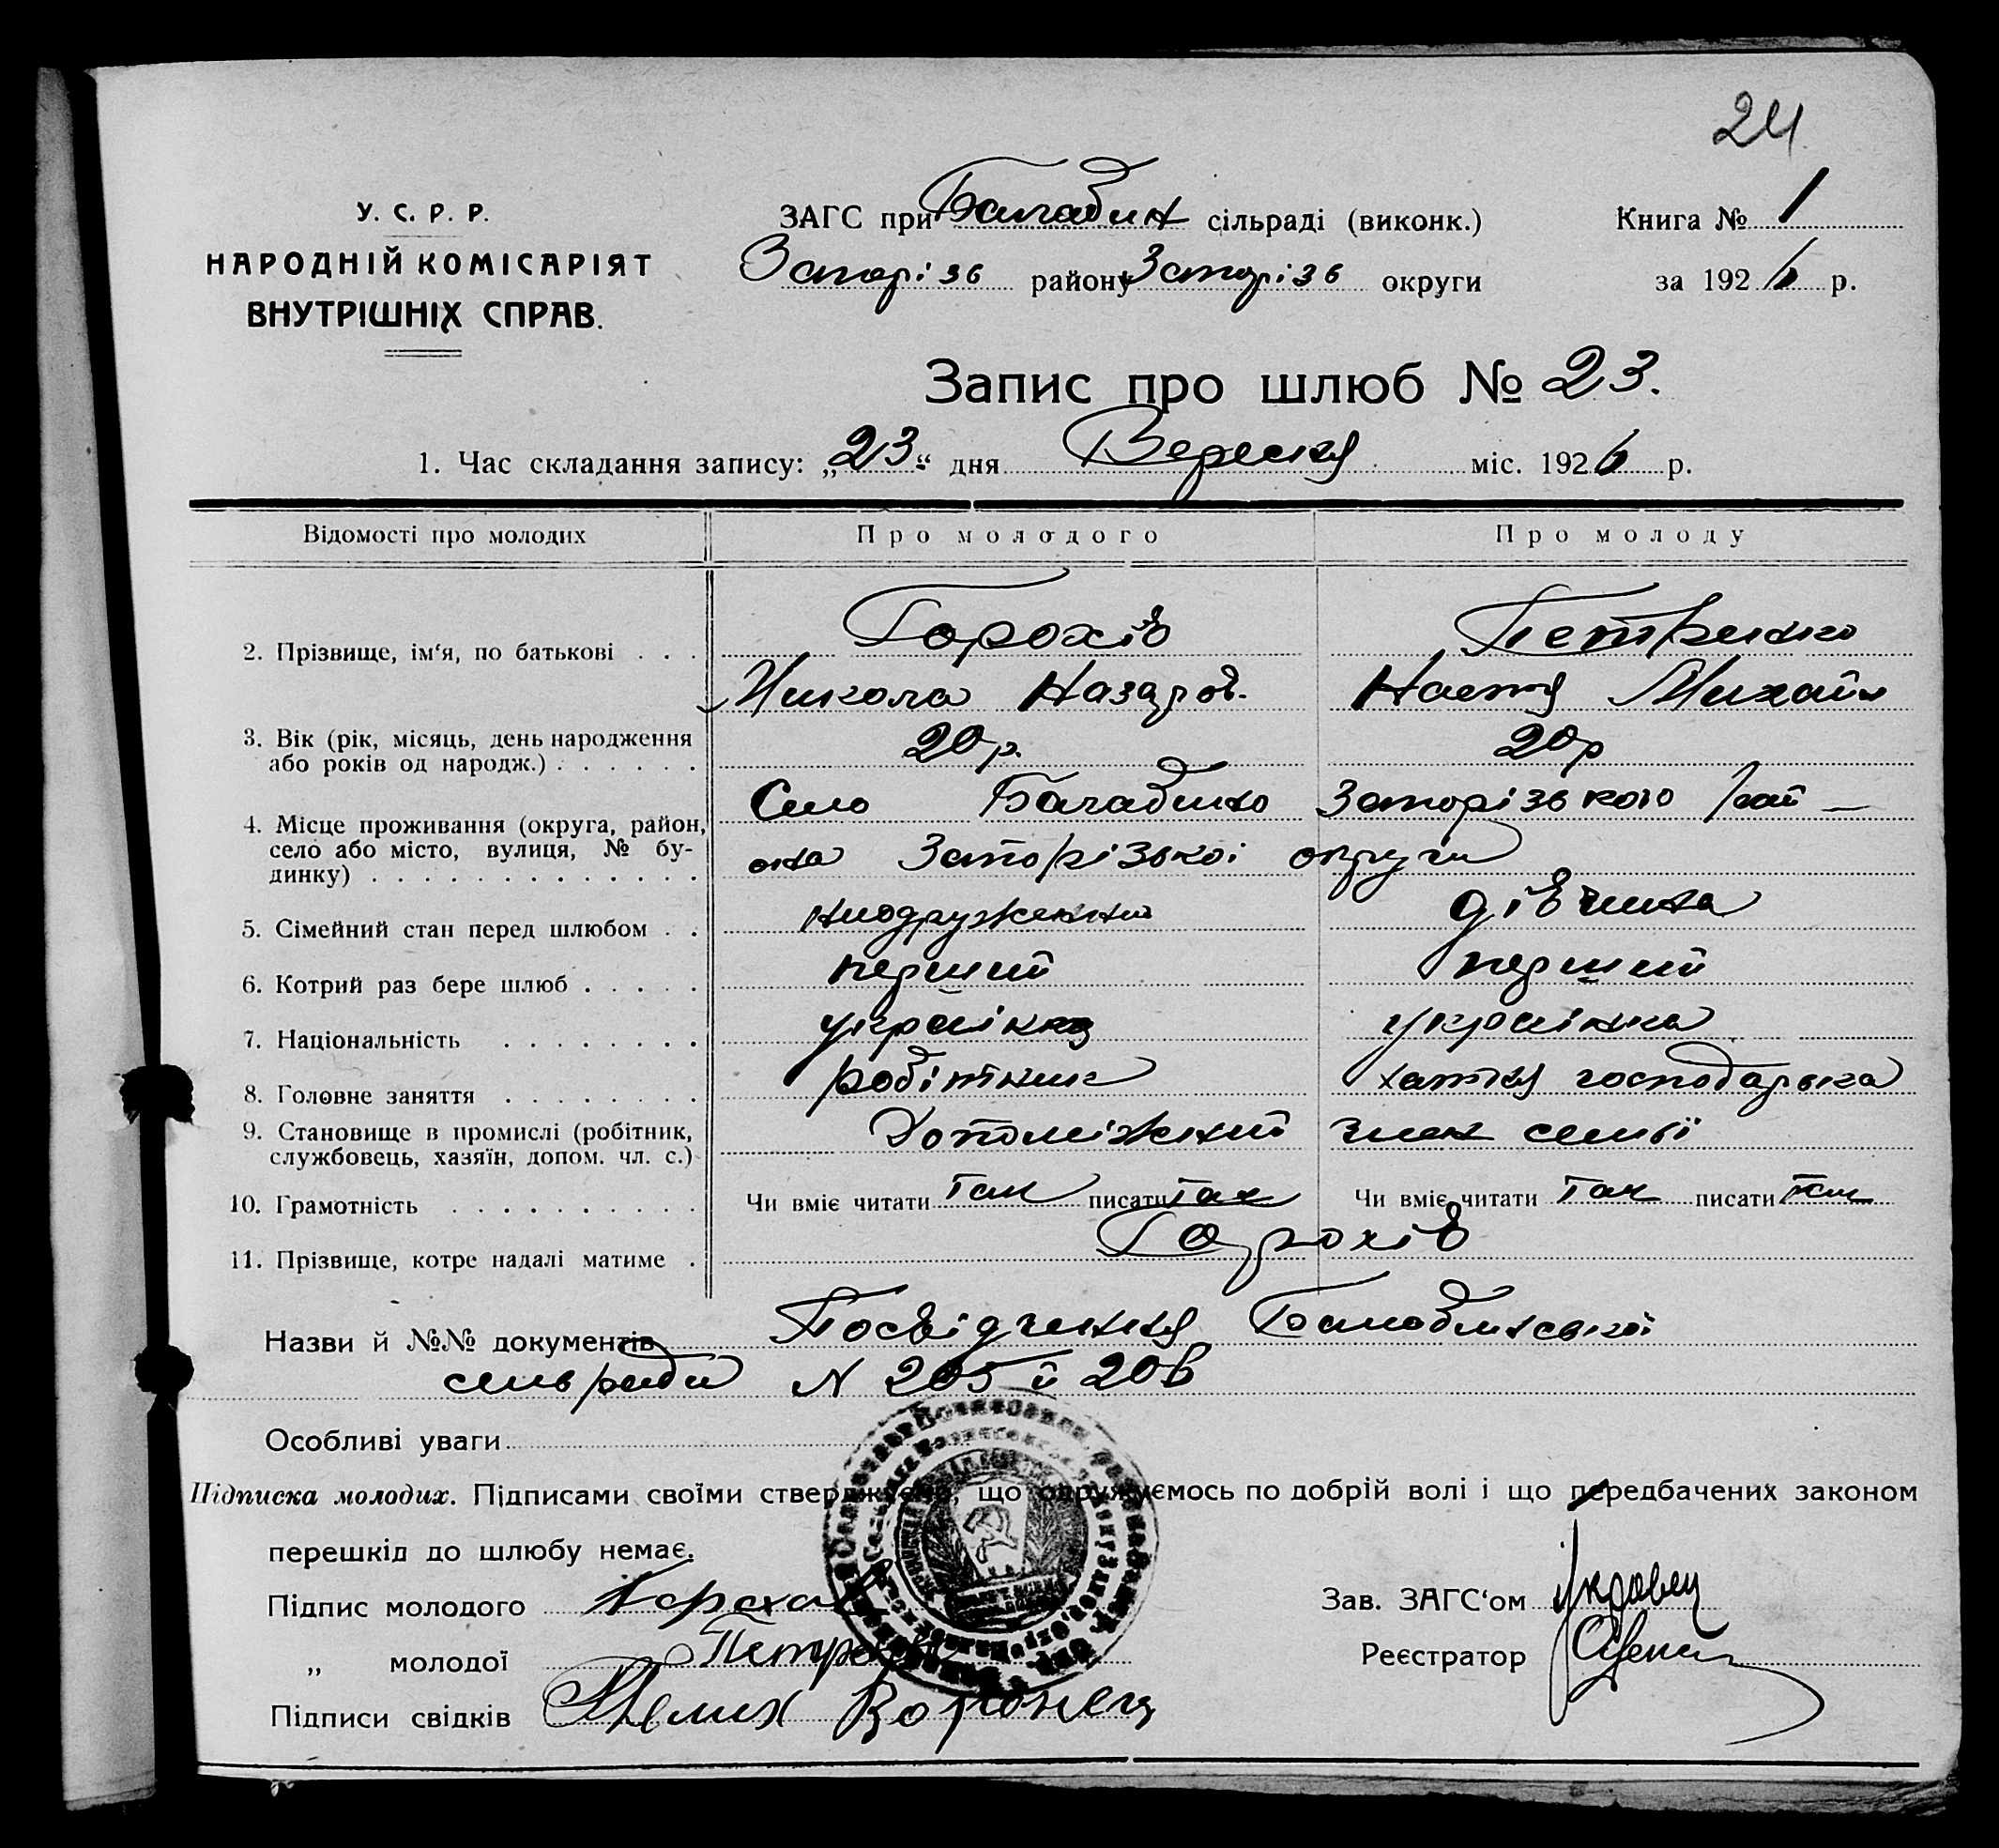 24
У. С. Р. Р.
НАРОДНІЙ КОМІСАРІЯТ
ВНУТРІШНІХ СПРАВ.
ЗАГС при Балабин сільраді (виконк.)
Запорізь району Запорізь округи
Книга № 1
за 1926 р.
Запис про шлюб № 23.
1. Час складання запису: „23“ дня Вересня міс. 1926 р.
Відомості про молодих Про молодого Про молоду
2. Прізвище, ім‘я, по батькові . . . Горохів Петренко
Микола Назаров. Настя Михайл
3. Вік (рік, місяць, день народження
або років од народж.) . . . . . . 20 р. 20 р
4. Місце проживання (округа, район, Село Балабино Запорізького рай —
село або місто, вулиця, № бу-
динку) . . . . . . . . . . . . . она Запорізької округи
5. Сімейний стан перед шлюбом . . неодружений дівчина
6. Котрий раз бере шлюб . . . . . перший перший
7. Національність . . . . . . . . українець українка
8. Головне заняття . . . . . . . . робітник хатня господарька
9. Становище в промислі (робітник, Допоміжний член семьї
службовець, хазяїн, допом. чл. с.)
10. Грамотність . . . . . . . . . . Чи вміє читати так писати так Чи вміє читати так писати так
11. Прізвище, котре надалі матиме . Горохів
Назви й №№ документів Посвідчення Балабинської
сельради N 205 й 206
Особливі уваги
Підписка молодих. Підписами своїми стверджуємо, що одружуємось по добрій волі і що передбачених законом
перешкід до шлюбу немає.
Підпис молодого Горохов
„ молодої Петренко
Підписи свідків Воронец
Зав. ЗАГС‘ом
Реєстратор